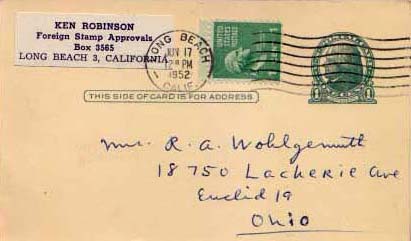 KEN ROBINSON
Foreign Stamp Approvals
Box 3565
LONG BEACH 3, CALIFORNIA
LONG BEACH
JUN 17
12 PM
1952
CALIF.
THIS SIDE OF CARD IS FOR ADDRESS
Mr. R. A. Wohlgemuth
18750 Lacherie Ave
Euclid 19
Ohio